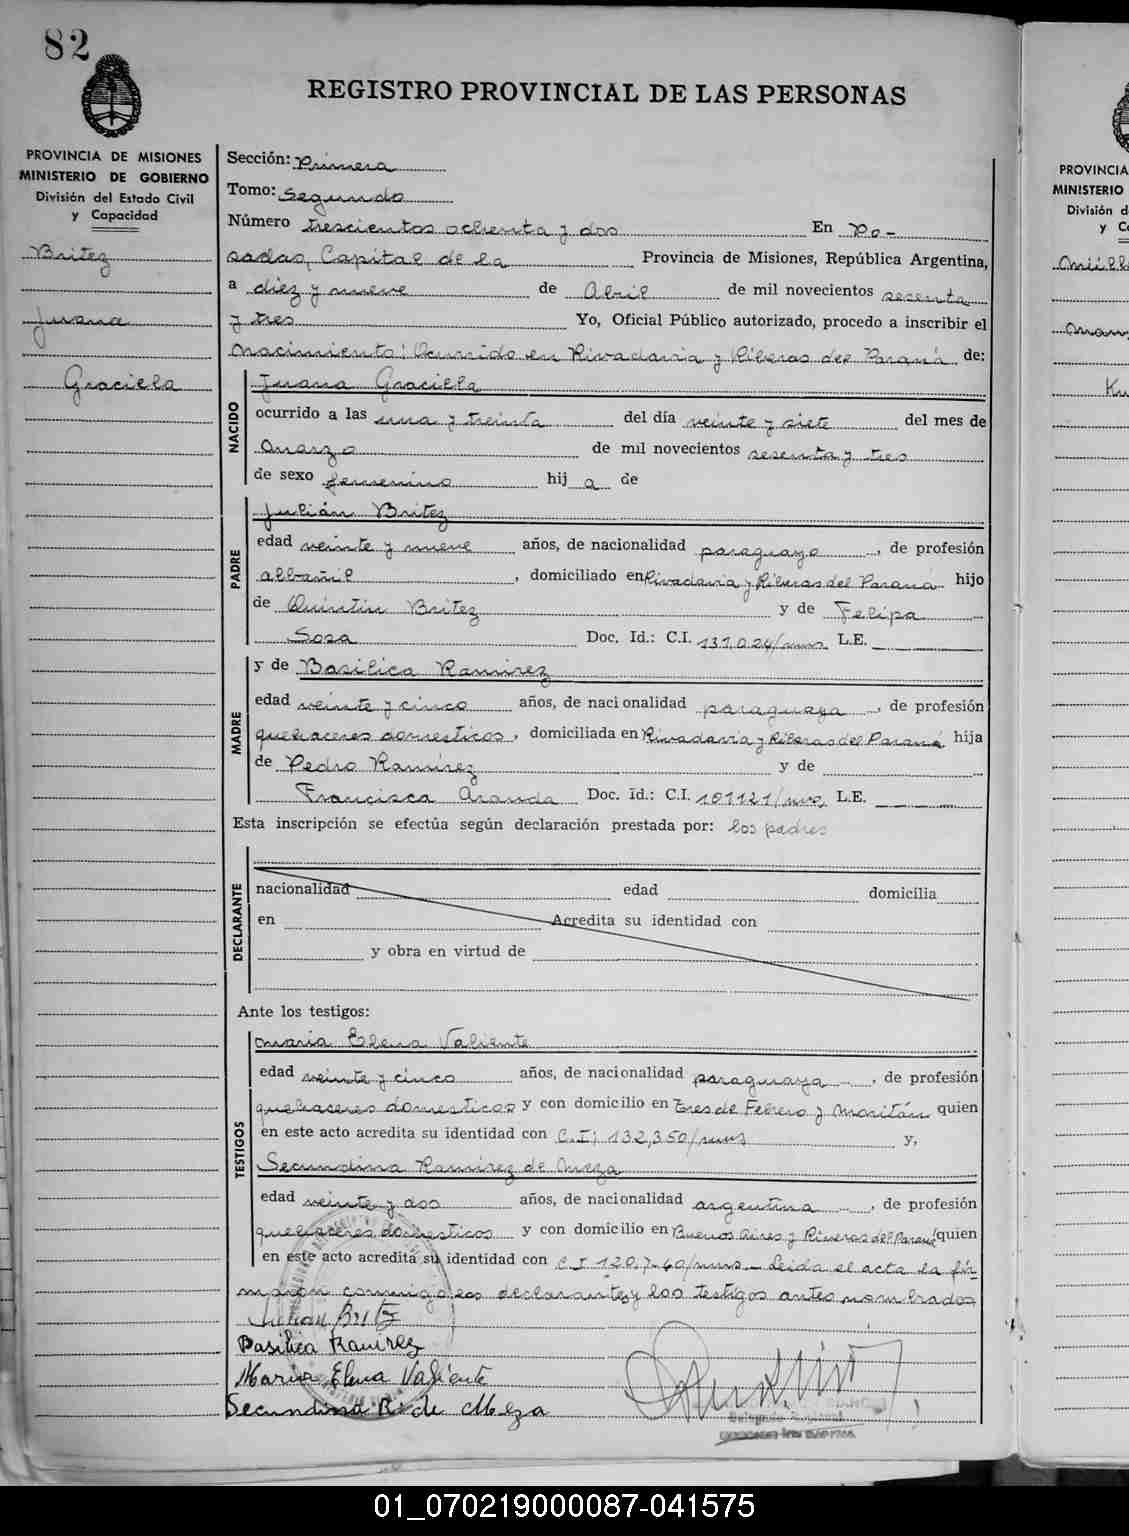 82
REGISTRO PROVINCIAL DE LAS PERSONAS
PROVINCIA DE MISIONES
MINISTERIO DE GOBIERNO
División del Estado Civil
y Capacidad
Britez
Juana
Graciela
Sección: Primera
Tomo: Segundo
Número trescientos ochenta y dos En Po-
sadas, Capital de la Provincia de Misiones, República Argentina,
a diez y nueve de Abril de mil novecientos sesenta
y tres Yo, Oficial Público autorizado, procedo a inscribir el
Nacimiento: Ocurrido en Rivadavia y Riberas del Paraná de:
NACIDO
Juana Graciela
ocurrido a las una y treinta del día veinte y siete del mes de
Marzo de mil novecientos sesenta y tres
de sexo femenino hij a de
PADRE
Julián Britez
edad veinte y nueve años, de nacionalidad paraguayo, de profesión
albañil, domiciliado en Rivadavia y Riberas del Paraná hijo
de Quintin Britez y de Felipa
Sosa Doc. Id.: C.I. 131.024/mns L.E.
MADRE
y de Basilica Ramirez
edad veinte y cinco años, de nacionalidad paraguaya, de profesión
quehaceres domesticos, domiciliada en Rivadavia y Riberas del Paraná hija
de Pedro Ramirez y de
Francisca Aranda Doc. Id.: C.I. 101121/mns, L.E.
Esta inscripción se efectúa según declaración prestada por: los padres
DECLARANTE
nacionalidad edad domicilia
en Acredita su identidad con
y obra en virtud de
Ante los testigos:
TESTIGOS
Maria Elena Valiente
edad veinte y cinco años, de nacionalidad paraguaya, de profesión
quehaceres domesticos y con domicilio en Tres de Febrero y Moritán quien
en este acto acredita su identidad con C.I: 132,350/mns y,
Secundina Ramirez de Meza
edad veinte y dos años, de nacionalidad argentina, de profesión
quehaceres domesticos y con domicilio en Buenos Aires y Riveras del Paraná quien
en este acto acredita su identidad con C.I 120,7-60/mns - Leida el acta la fir-
maron conmigo los declarantes y los testigos antes nombrados
Julian Britez
Basilica Ramirez
Maria Elena Valiente
Secundina R. de Meza
PROVINCIA
MINISTERIO
División d
y C
01_070219000087-041575